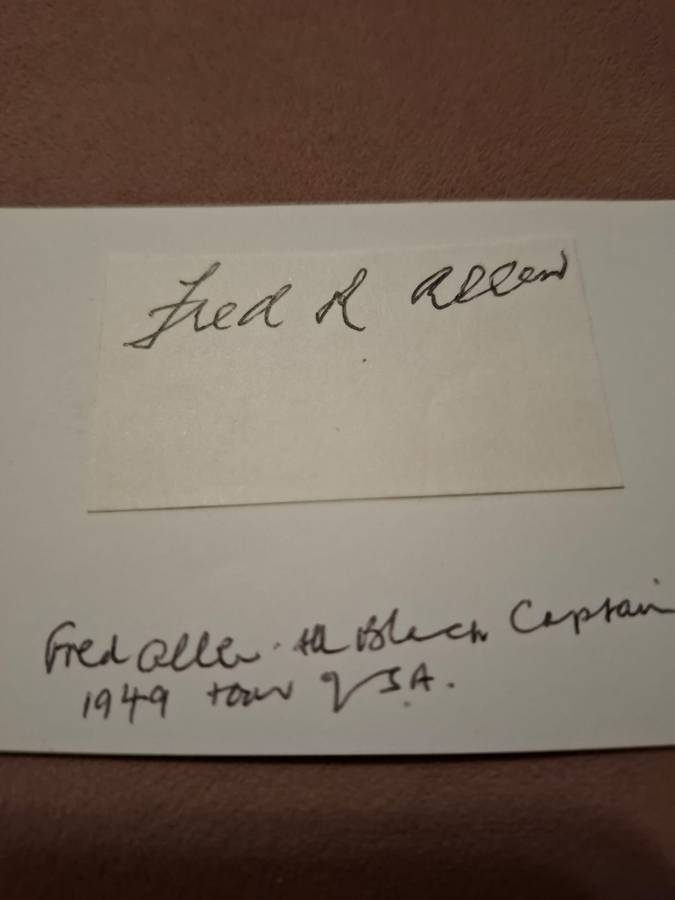 Fred R Allen
Fred Allen. All Black Captain
1949 tour of S.A.